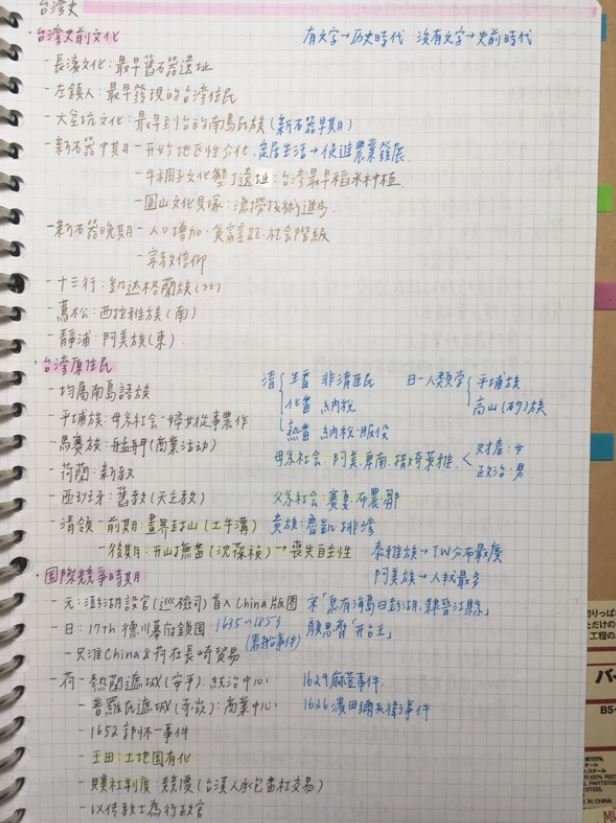 台湾史
・台湾史前文化
有文字→历史時代 沒有文字→史前時代
-長濱文化:最早舊石器遺址
-左鎮人:最早發現的台湾住民
-大坌坑文化:最早到台的南島民族(新石器早期)
-新石器中期-开始地区性分化.定居生活→促進農業發展
-牛稠子文化墾丁遺址:台湾最早稻米种植
-圓山文化貝塚:漁撈技術進步
-新石器晚期-人口增加.貧富差距.社会階級
-宗教信仰
-十三行:凱达格蘭族(北)
-蔦松:西拉雅族(南)
-靜浦:阿美族(東)
・台湾原住民
清 生番 非清住民
化番 納稅
熟番 納稅.服役
日-人類学 平埔族
高山(砂)族
-均屬南島語族
-平埔族:母系社会-婦女從事農作
-馬賽族:艋舺(商業活动)
母系社会:阿美.卑南.
財產:女
政治:男
-荷蘭:新教
-西班牙:舊教(天主教)
父系社会:賽夏.布農.鄒
-清領-前期:畫界封山(土牛溝)
貴族:魯凱.排湾
-後期:开山撫番(沈葆楨)→喪失自主性
泰雅族→TW分布最廣
阿美族→人数最多
・国際競爭時期
-元:澎湖設官(巡檢司)首入China版図
宋「 有海島曰彭湖,隸晉江縣」
-日:17th 德川幕府鎖国 1635~1853
(黑船事件)
顏思齊「开台王」
-只准China&荷在長崎貿易
-荷-熱蘭遮城(安平):統治中心
1629麻荳事件
-普羅民遮城(赤崁):商業中心
1626濱田彌兵衛事件
-1652郭怀一事件
-王田:土地国有化
-贌社制度:競價(台漢人承包番社交易)
-以傳教士為行政官